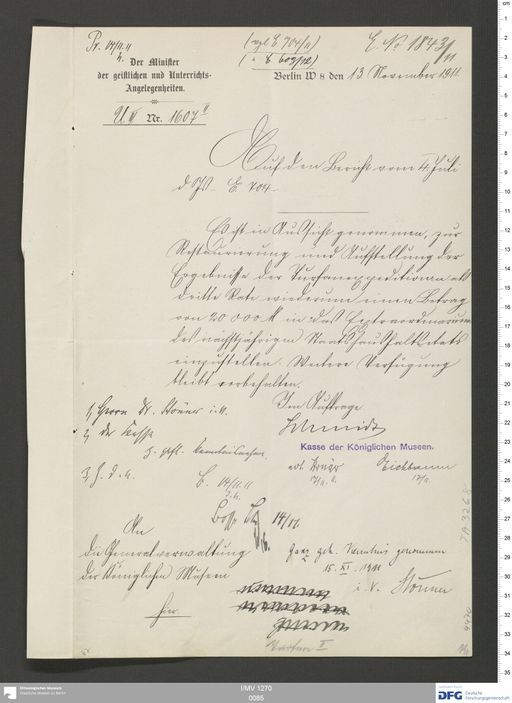 Pr. 14/11.11
(vgl E 704/11)
( " E 603/12)
E. No 1843/11
Der Minister
der geistlichen und Unterrichts-
Angelegenheiten.
Berlin W 8 den 13. November 1911
Nr. 1607
Auf den Bericht vom 4. Juli
d. Js. E. 704.
Es ist in Aussicht genommen, zur
Restaurierung und Aufstellung der
Ergebnisse der Turfanexpeditionen als
dritte Rate wiederum einen Betrag
von 20 000 M in das Extraordinarium
des nächstjährigen Staatshaushaltsetats
einzustellen. Weitere Verfügung
bleibt vorbehalten.
Im Auftrage
Schmidt
1, Herrn Dr. Stönner i. V.
2, der Kasse
z. gefl. Kenntnisnahme
3, z. d. A.
Kasse der Königlichen Museen.
B. 14/11.11
14/11.
An
die Generalverwaltung
der Königlichen Museen
hier.
Kenntnis genommen
15. XI. 1911
i. V. Stönner
Turfan
TA 3268
4470
Ethnologisches Museum
Staatliche Museen zu Berlin
I/MV 1270
0085
DFG Deutsche
Forschungsgemeinschaft